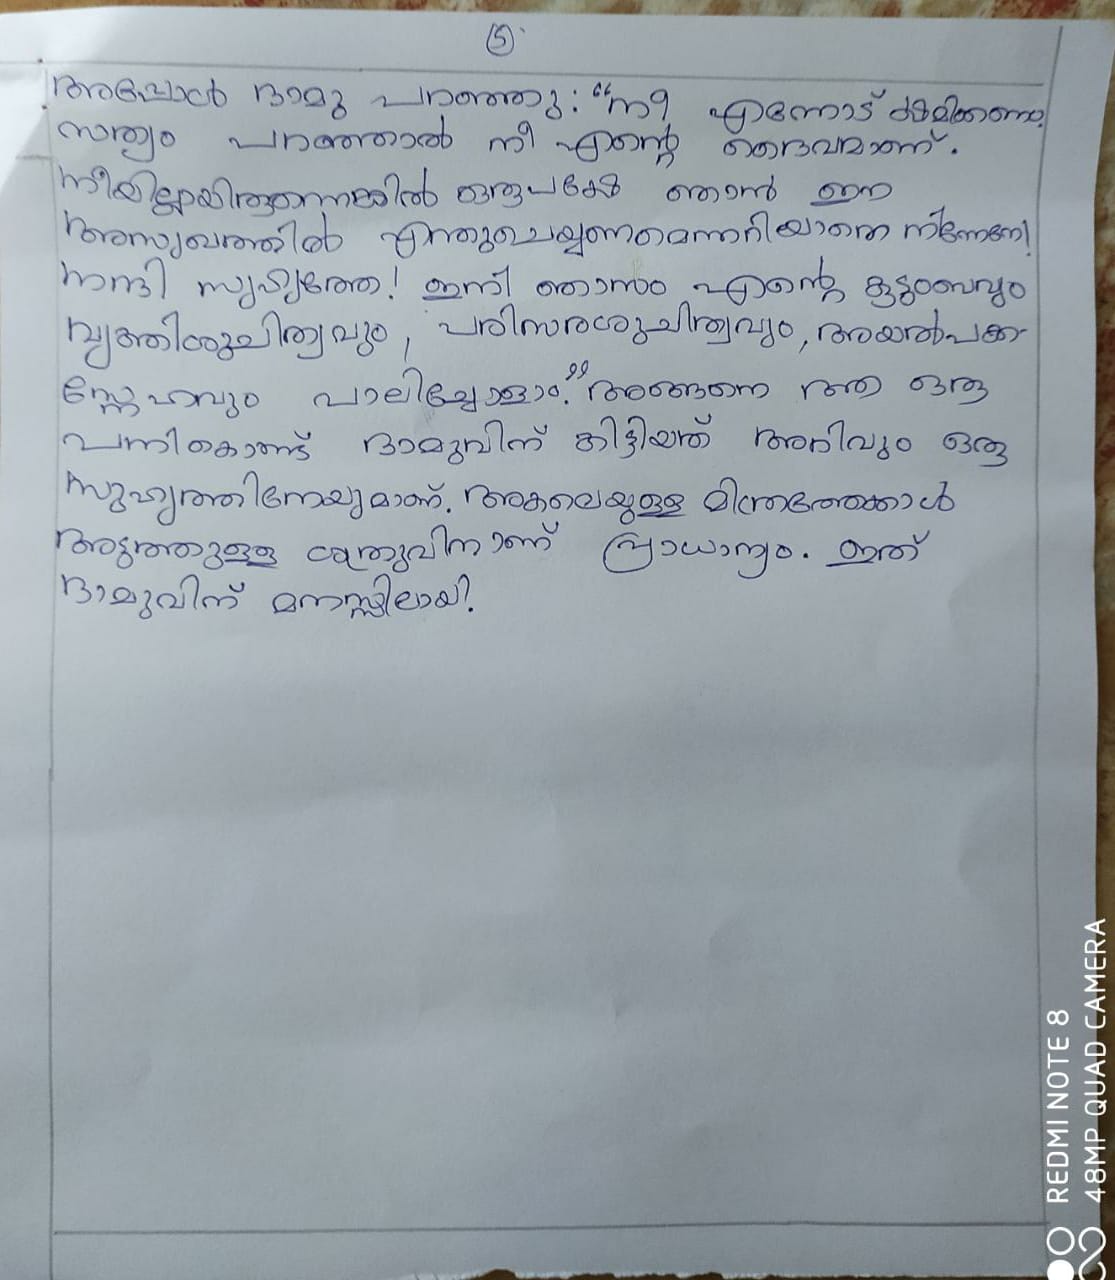 ⑤
അപ്പോൾ ദാമു പറഞ്ഞു: "നീ എന്നോട് ക്ഷമിക്കണം
സത്യം പറഞ്ഞാൽ നീ എന്റെ ദൈവമാണ്.
നീയില്ലായിരുന്നെങ്കിൽ ഒരുപക്ഷേ ഞാൻ ഈ
അസുഖത്തിൽ എന്തുചെയ്യണമെന്നറിയാതെ നിന്നേനേ!
നന്ദി സുഹൃത്തേ! ഇനി ഞാനും എന്റെ കുടുംബവും
വ്യക്തിശുചിത്വവും, പരിസരശുചിത്വവും, അയൽപക്ക
സ്നേഹവും പാലിച്ചോളാം." അങ്ങനെ ആ ഒരു
പനികൊണ്ട് ദാമുവിന് കിട്ടിയത് അറിവും ഒരു
സുഹൃത്തിനേയുമാണ്. അകലെയുള്ള മിത്രത്തേക്കാൾ
അടുത്തുള്ള ശത്രുവിനാണ് പ്രാധാന്യം. ഇത്
ദാമുവിന് മനസ്സിലായി.
REDMI NOTE 8
48MP QUAD CAMERA